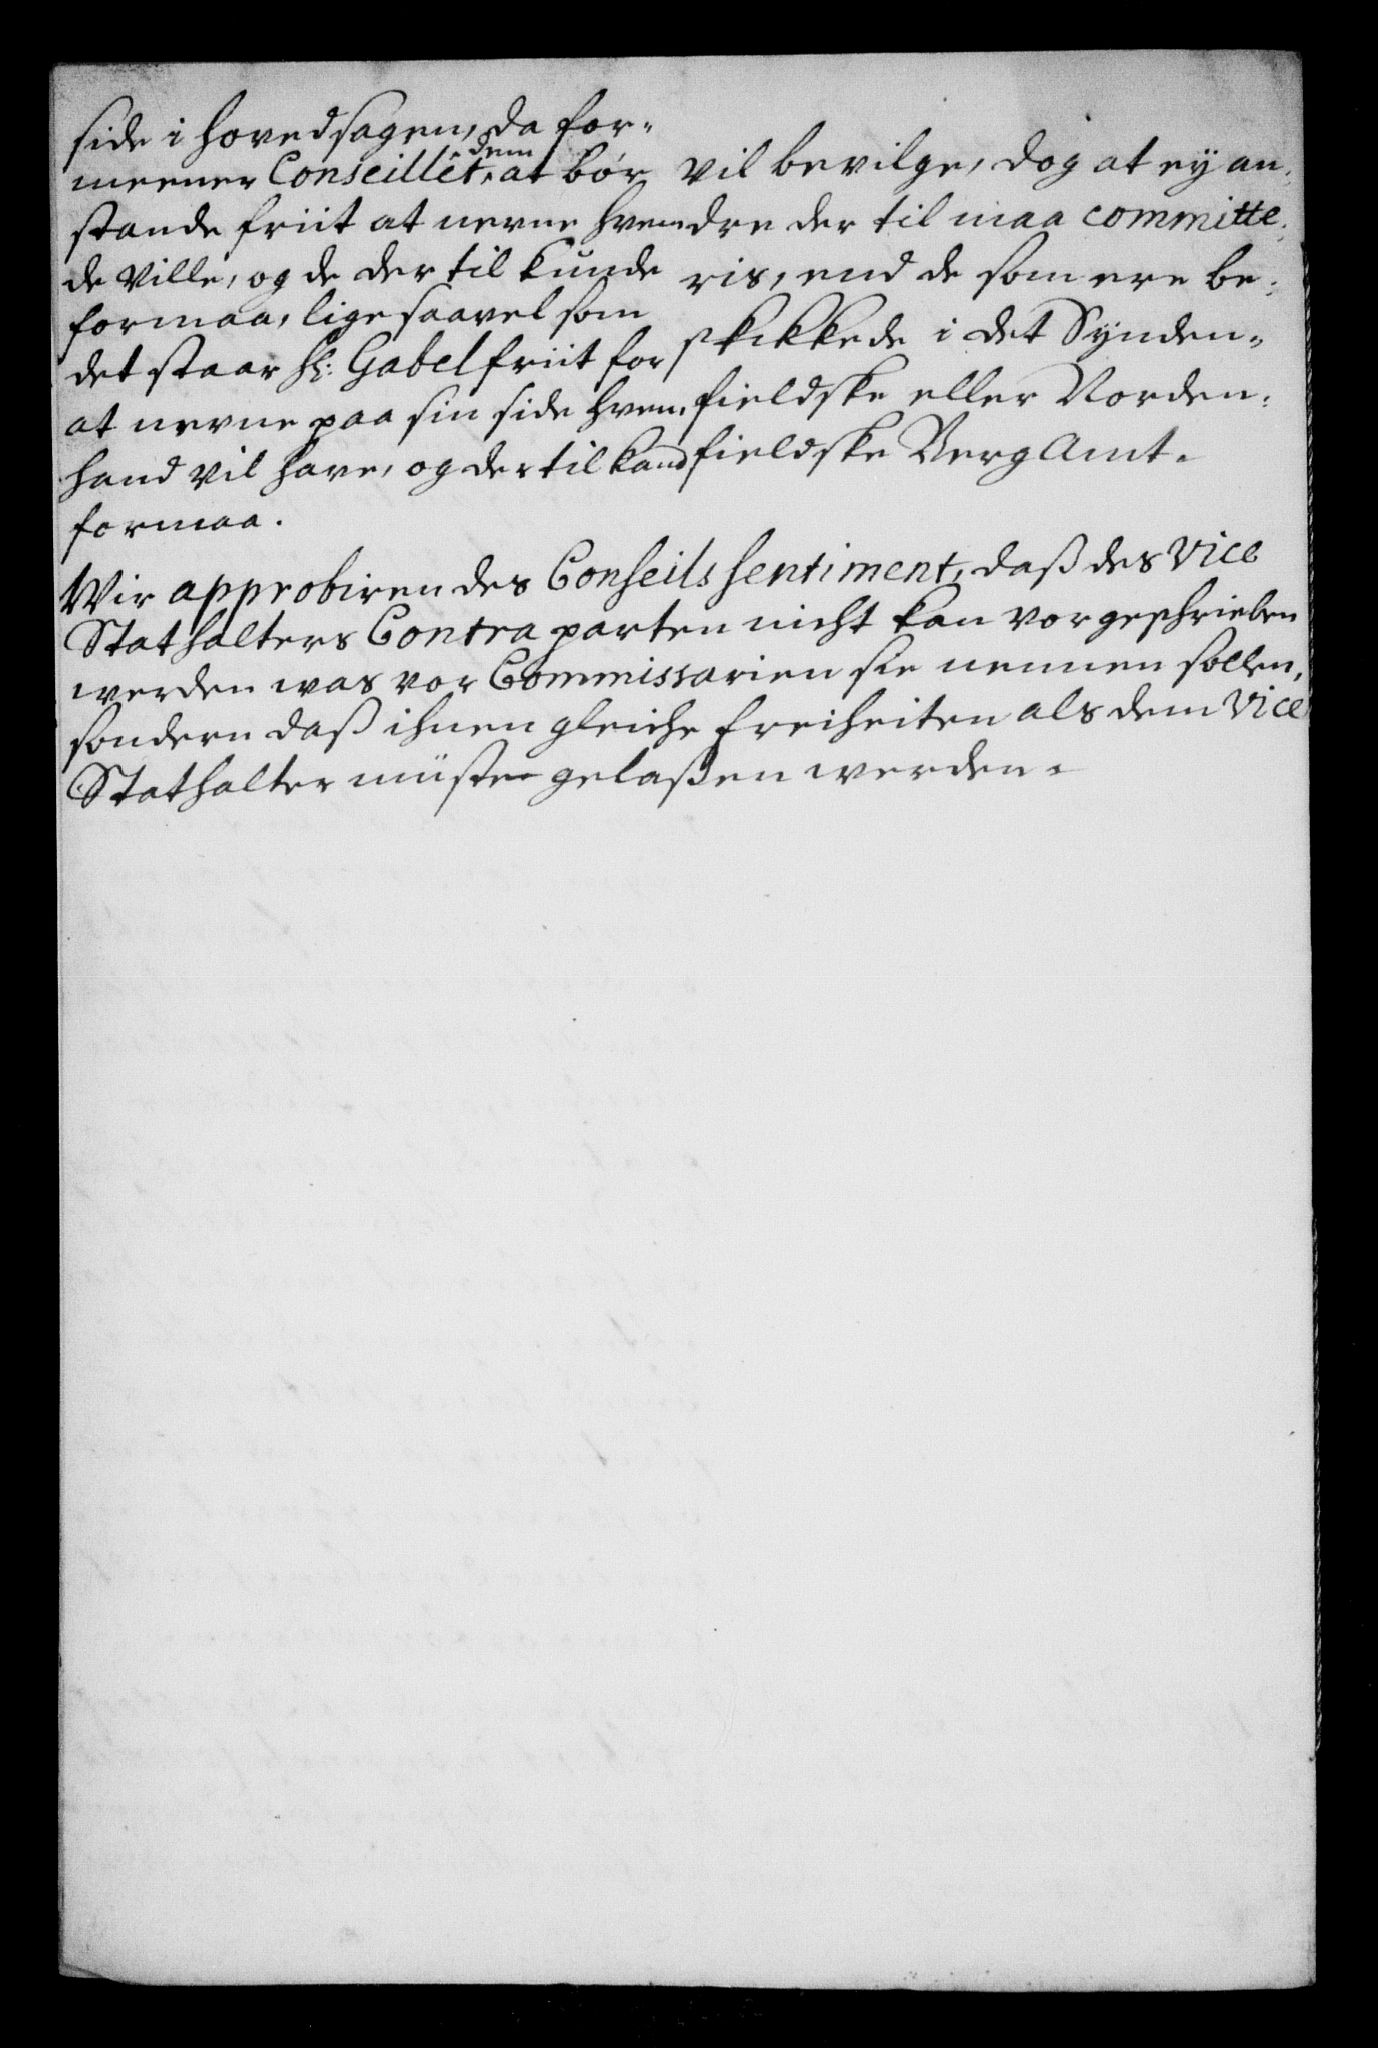 side i hovedsagen, da for-
meener Conseillet, dem at bør
stande friit at nevne hvem
de ville, og de der til kunde
formaa, lige saavel som
det staar Hr: Gabel friit for
at nevne paa sin side hvem,
hand vil have, og der til kand
formaa.
vil bevilge, dog at ey an-
dre der til maa committe-
ris, end de som ere be-
skikkede i det Synden-
fieldske eller Norden-
fieldske Berg Amt.
Wir approbiren des Conseils sentiment, daß des Vice
Stathalters Contra parten nicht kan vorgeschrieben
werden was vor Commissarien sie nennen sollen,
sondern daß ihnen gleiche freiheiten als dem Vice
Stathalter müste gelaßen werden.